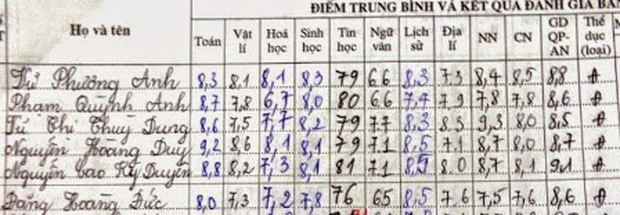 ĐIỂM TRUNG BÌNH VÀ KẾT QUẢ ĐÁNH GIÁ
Họ và tên Toán Vật lí Hoá học Sinh học Tin học Ngữ văn Lịch sử Địa lí NN CN GD QP-AN Thể dục (loại)
Từ Phương Anh 8,3 8,1 8,1 8,3 79 66 8,3 7.3 8,4 8,5 8,8 Đ
Phạm Quỳnh Anh 8,7 7,8 6,7 8,0 80 6.6 7,4 7.9 7,8 7,8 8,6 Đ
Từ Thị Thuỳ Dung 8,6 7,5 7,7 8,2 79 7.7 8,3 8.3 9,3 8.0 8,5 Đ
Nguyễn Hoàng Duy 9,2 8,6 8,1 8,1 79 7.1 8,5 7.1 8,7 8,0 8,7 Đ
Nguyễn Cao Kỳ Duyên 8,8 8,2 7,3 8,1 81 7.1 8,5 8.0 8,7 8,1 9,1 Đ
Đặng Hoàng Đức 8,0 7,3 7,2 7,8 76 65 8,5 7.6 7,5 7,6 8,6 Đ